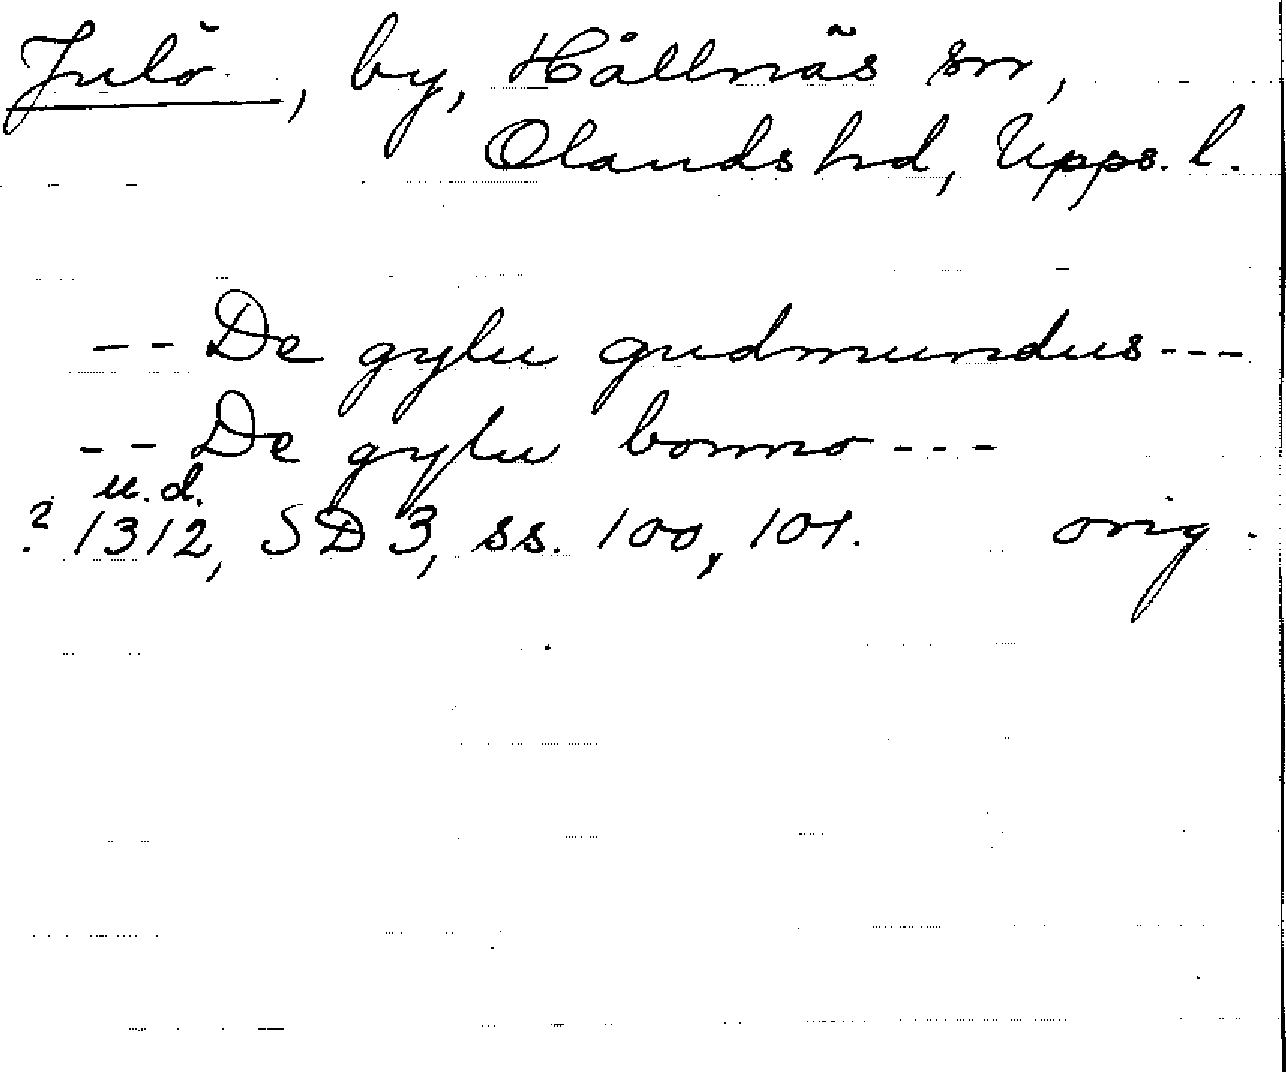 Julö, by, Hållnäs sn,
Olands hd, Upps. l.
-- De gylu gudmundus ---
-- De gylu bonno ---
u.d.
? 1312, SD 3, ss. 100, 101. orig.